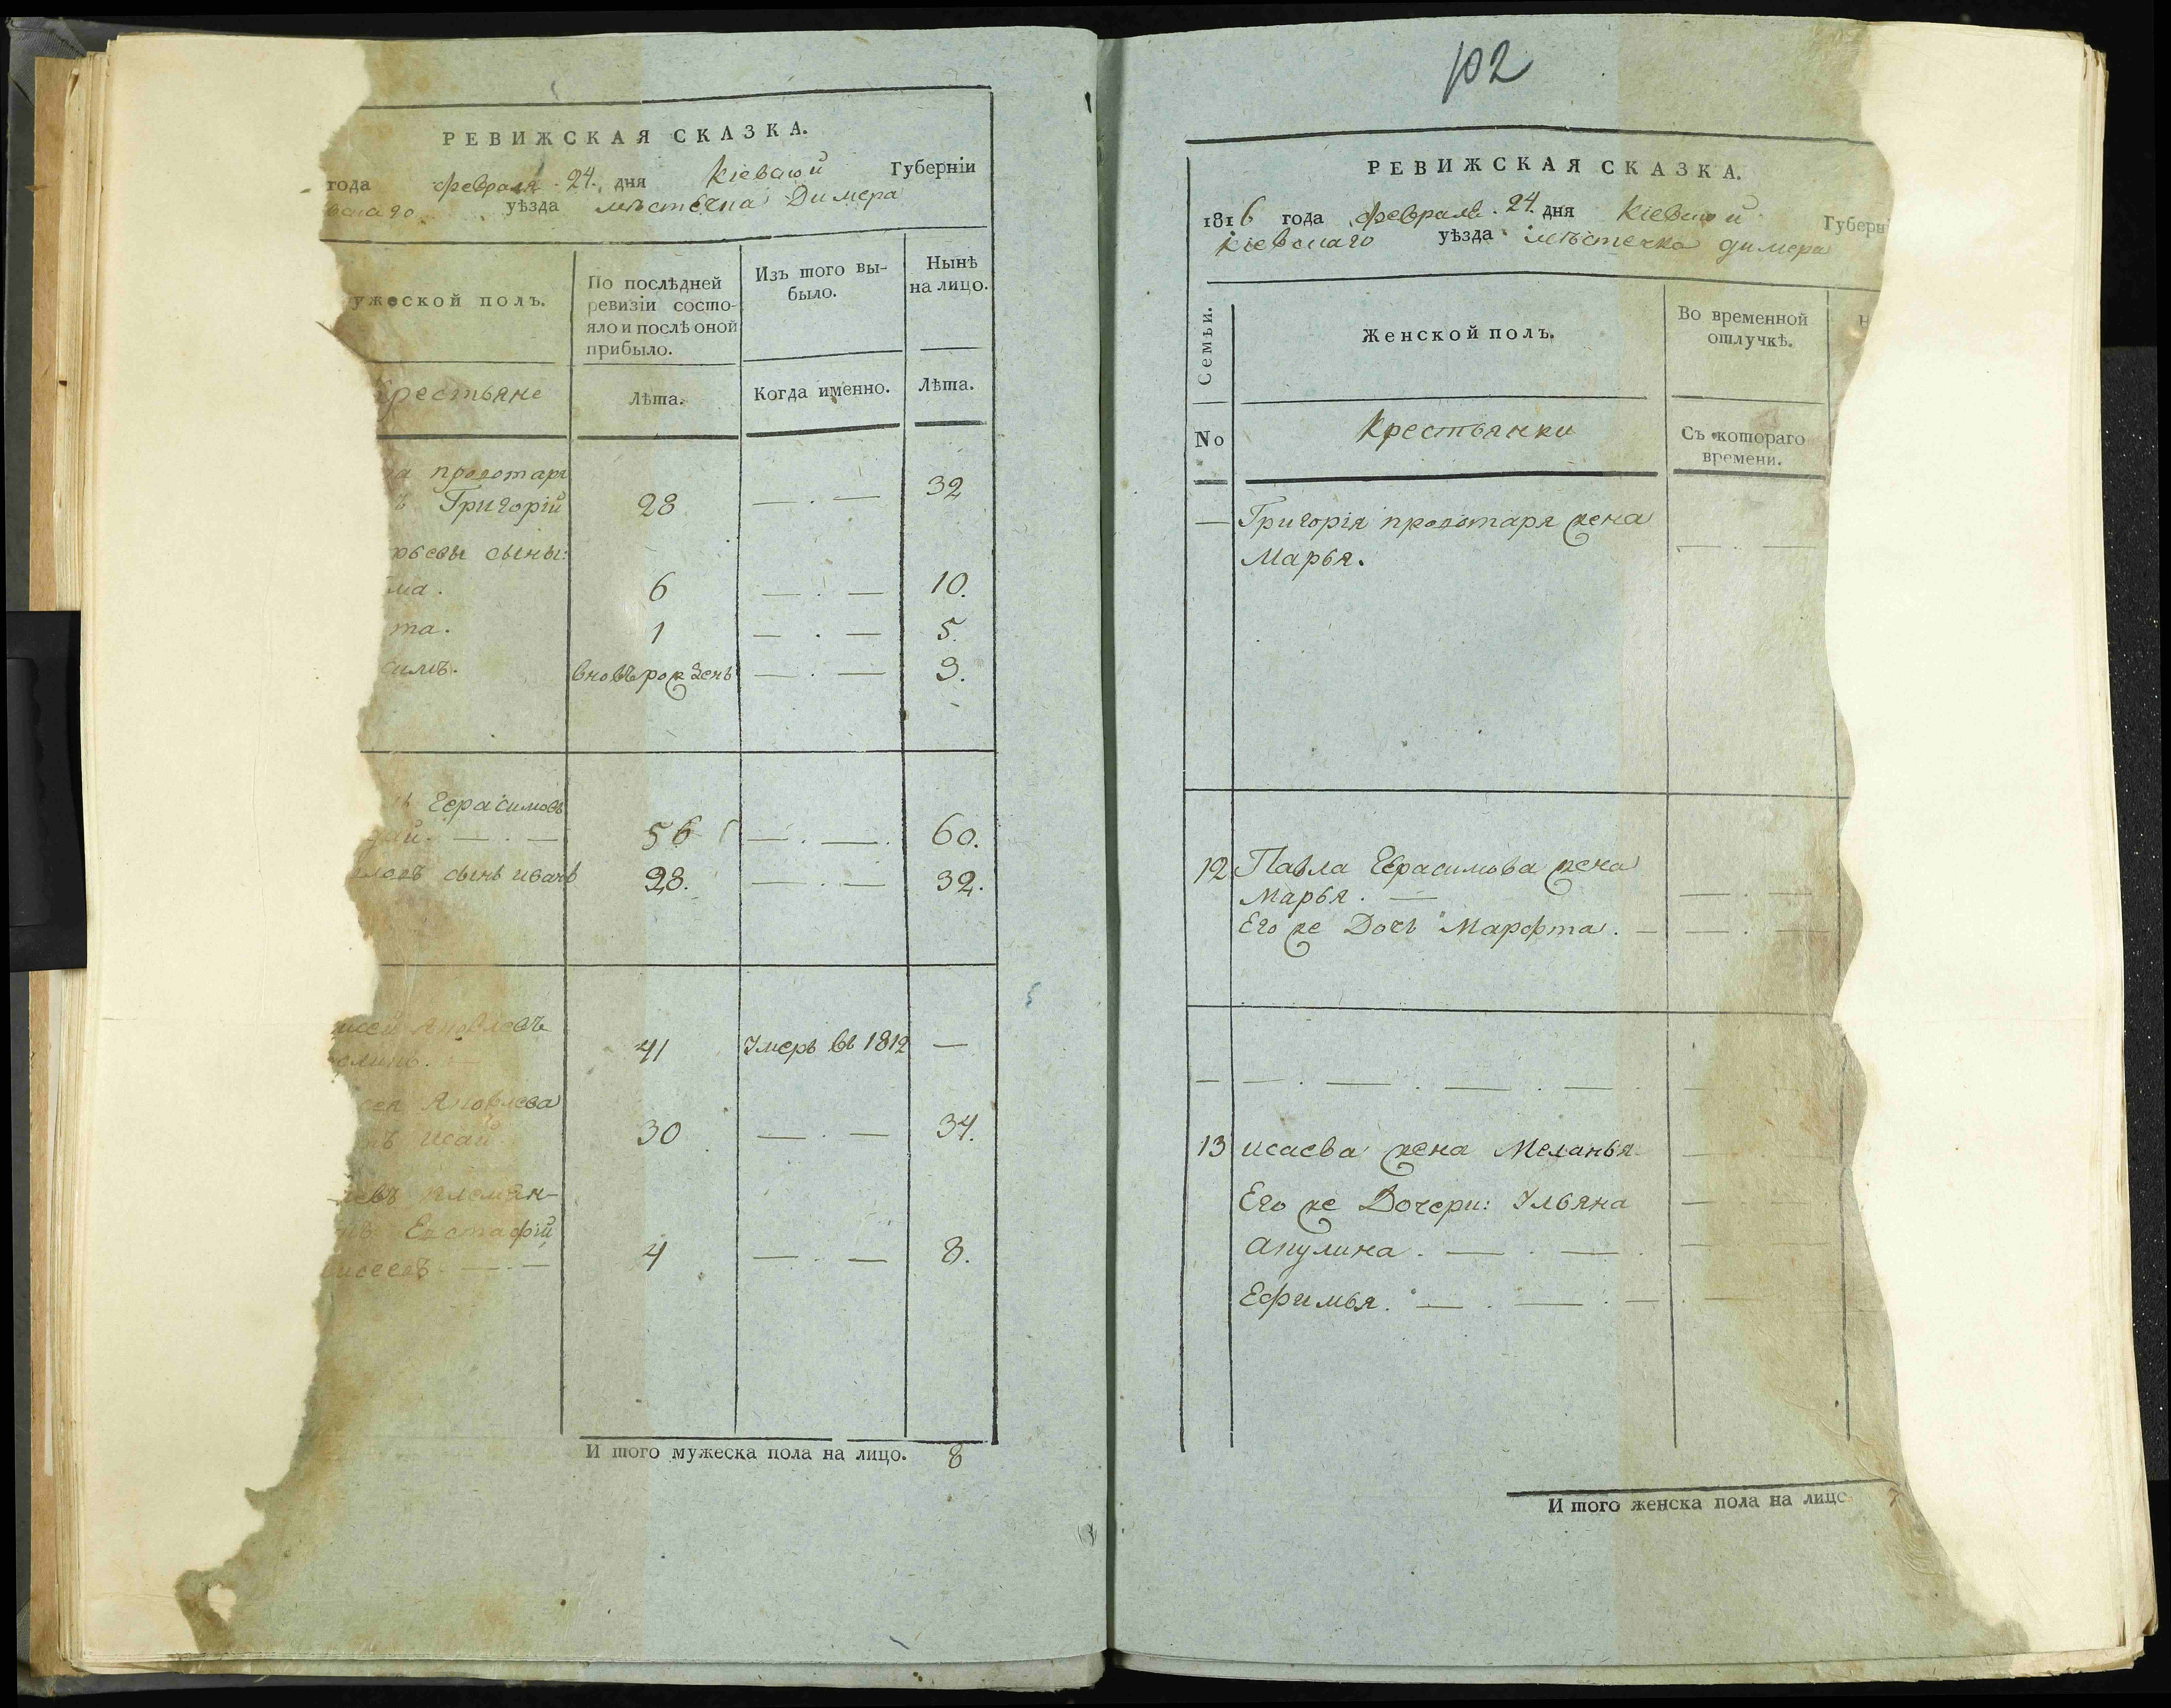 РЕВИЖСКАЯ СКАЗКА.
года февраля 24. дня Кіевской Губерніи
вскаго уѣзда мѣстечка Димера
ужеской полъ.
По послѣдней
ревизіи состо-
яло и послѣ оной
прибыло.
Изъ того вы-
было.
Нынѣ
на лицо.
Крестьяне
Лѣта.
Когда именно.
Лѣта.
Григорій 28 — . — 32
сыны:
ма. 6 — . — 10.
та. 1 — . — 5.
симъ. вновьрожденъ — . — 3.
Герасимовъ
56 — . — . 60.
сынъ иванъ 28. — . — 32.
Яковлевъ
41 Умеръ въ 1812 —
Яковлева
исай 30 — . — 34.
племян-
Евстафій
4 — . — 8.
И того мужеска пола на лицо. 8
102
РЕВИЖСКАЯ СКАЗКА.
1816 года февраля. 24. дня Кіевской Губерн
Кіевскаго уѣзда мѣстечка димера
Семьи.
Женской полъ.
Во временной
отлучкѣ.
Н
No
Крестьянки
Съ котораго
времени.
— Григорія жена
Марья. — . —
12 Павла Герасимова жена
Марья. — — . —
Его же Дочь Марфта. — — . —
— — . — . — . —
13 исаева жена Меланья
Его же Дочери: Ульяна
Акулина. — . — .
Ефимья. — . — . —
И того женска пола на лицо. 7